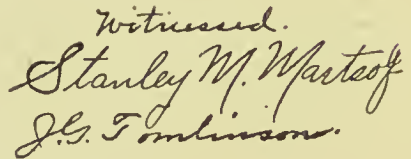 Witnessed.
Stanley M. Martsolf
J.G. Tomlinson.